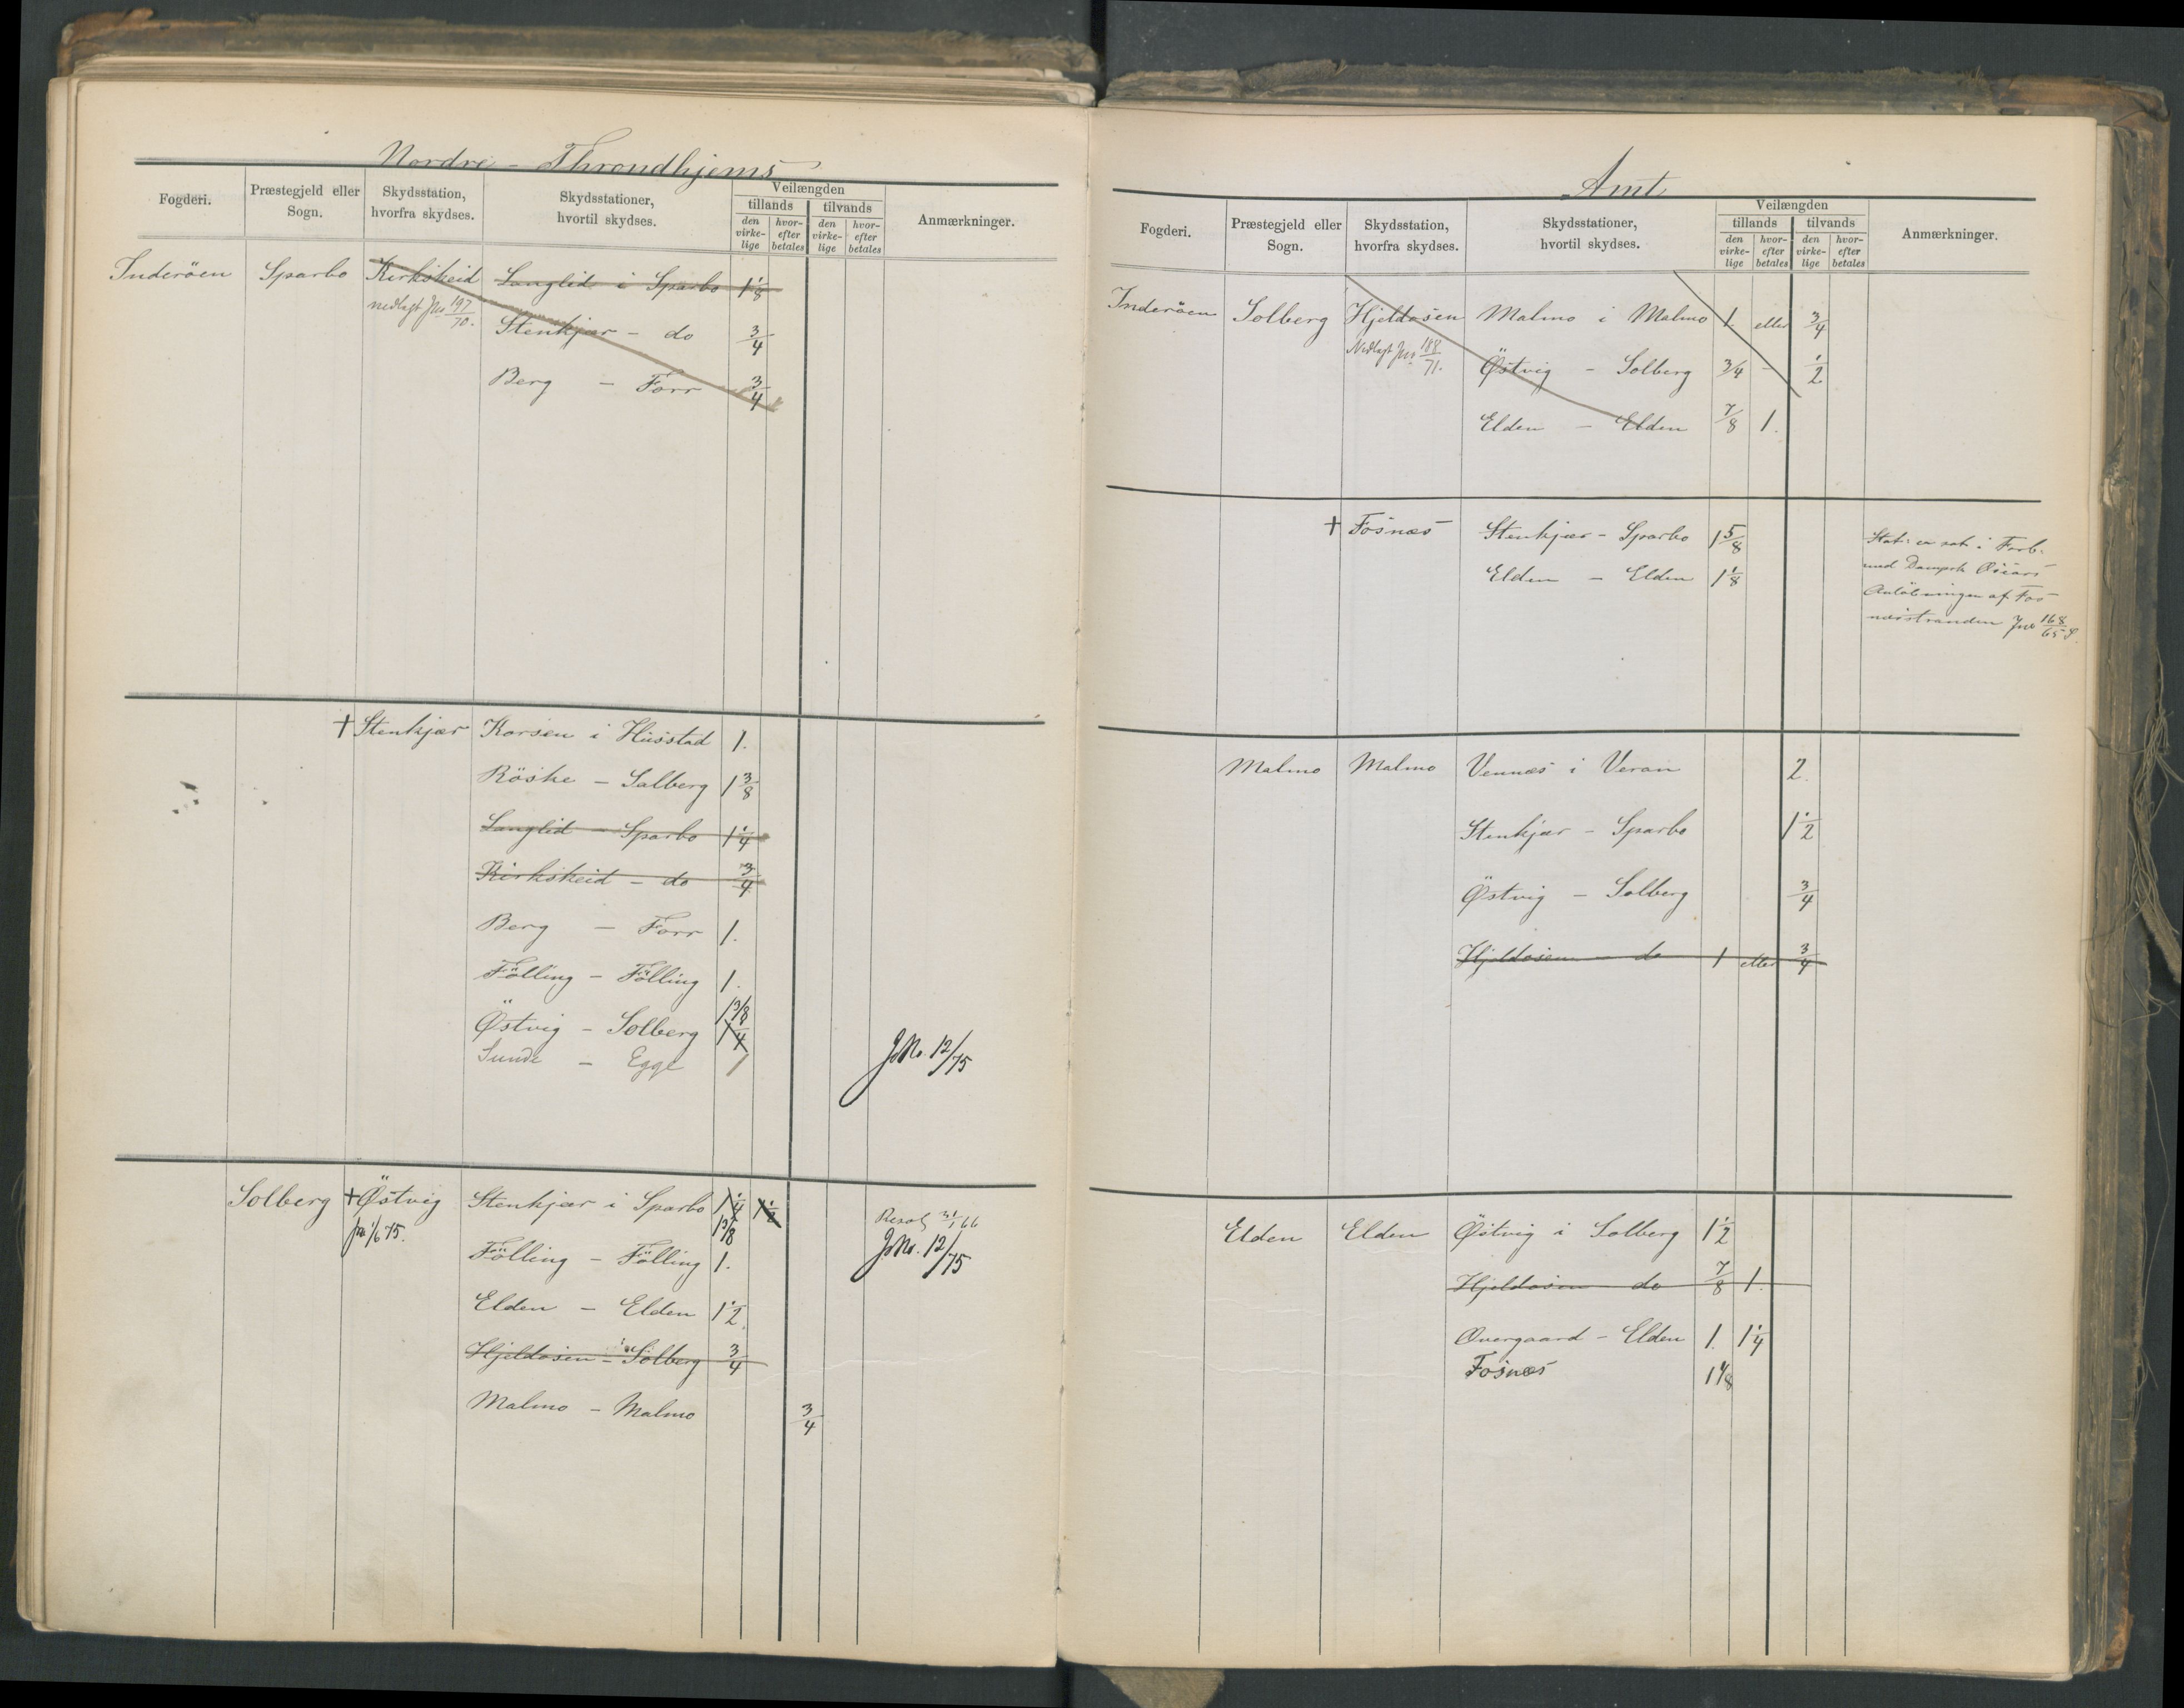 Nordre - Throndhjems
Fogderi. Præstegjeld eller Sogn. Skydsstation, hvorfra skydses. Skydsstationer, hvortil skydses. Veilængden tillands tilvands den virke-lige hvor-efter betales den virke-lige hvor-efter betales Anmærkninger.
Inderöen Sparbo Kirkskeid Langlid i Sparbo 1 1/8
nedlagt Jno 197/70.
Stenkjær - do 3/4
Berg - Forr 3/4
+ Stenkjær Korsen i Husstad 1.
Röske - Salberg 1 3/8
Langlid - Sparbo 1 1/4
Kirkskeid - do 3/4
Berg - Forr 1.
Fölling - Fölling 1.
Östvig - Solberg 1 3/8 1 1/4
Sunde - Egge 1 JNo. 12/75
Solberg + Östvig Stenkjær i Sparbo 1 1/4 1 1/2 Resol 31/1 66
fra 1/6 75. 1 3/8 JNo. 12/75
Fölling - Fölling 1.
Elden - Elden 1 1/2.
Hjeldosen - i Solberg 3/4
Malmo - Malmo 3/4
Amt
Fogderi. Præstegjeld eller Sogn. Skydsstation, hvorfra skydses. Skydsstationer, hvortil skydses. Veilængden tillands tilvands den virke-lige hvor-efter betales den virke-lige hvor-efter betales Anmærkninger.
Inderöen Solberg Hjeldosen Malmo i Malmo 1. eller 3/4
Nedlagt Jno 188/71.
Östvig - Solberg 3/4 - 1/2
Elden - Elden 7/8 1.
+ Fosnæs Stenkjær - Sparbo 1 5/8
Elden - Elden 1 1/8
Stat: er sat i Forb:
med Dampsk Oscars
Anlöbningen af Fos-
næsstranden Jno 168/65
Malmo Malmo Vennæs i Veran 2.
Stenkjær - Sparbo 1 1/2
Östvig - Solberg 3/4
Hjeldosen - do 1 eller 3/4
Elden Elden Östvig i Solberg 1 1/2
Hjeldosen do 7/8 1.
Overgaard - Elden 1. 1 1/4
Fosnæs 1 1/8